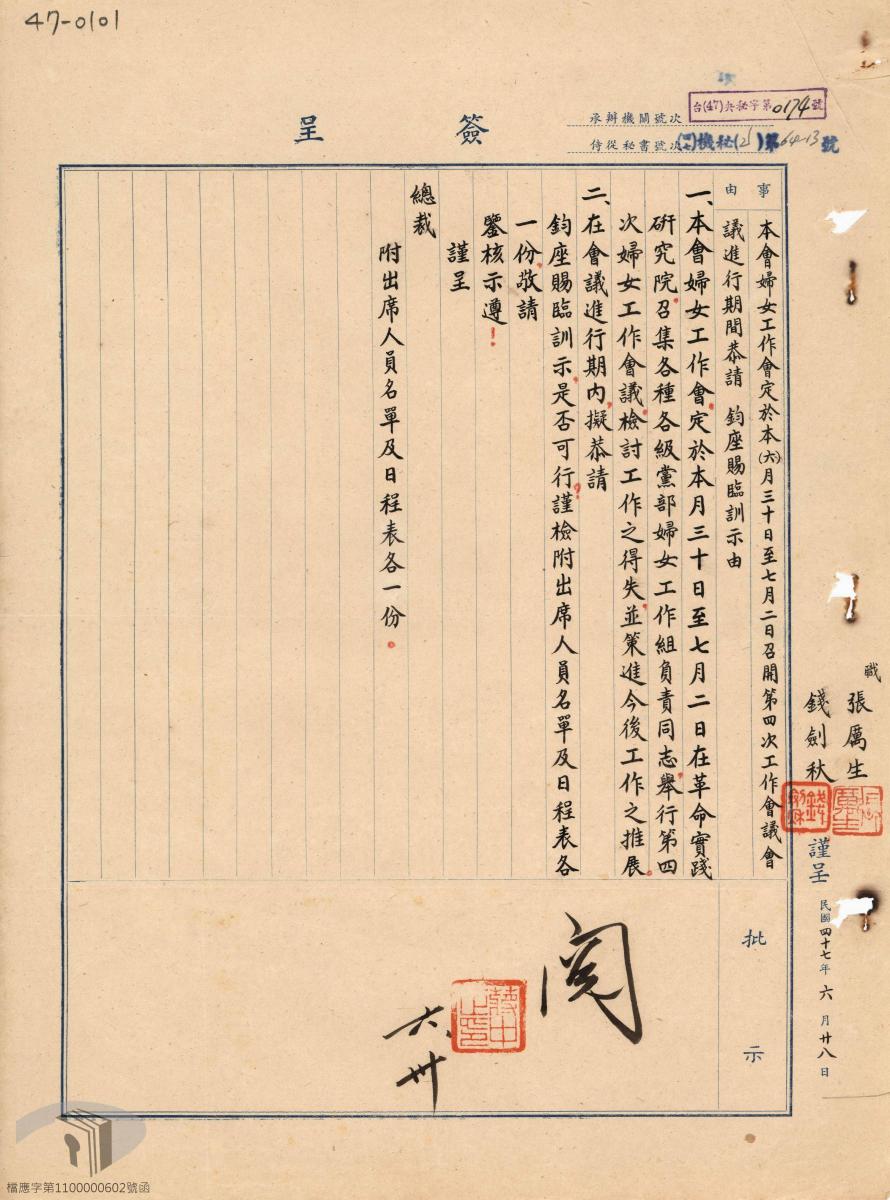 47-0101
簽呈
承辦機關號次
台(47)央秘字第0174號
侍從秘書號次
(四七)機秘(乙)第64-13號
事由
本會婦女工作會定於本(六)月三十日至七月二日召開第四次工作會議會
議進行期間恭請 鈞座賜臨訓示由
一、本會婦女工作會定於本月三十日至七月二日在革命實踐
研究院召集各種各級黨部婦女工作組負責同志舉行第四
次婦女工作會議檢討工作之得失並策進今後工作之推展。
二、在會議進行期內,擬恭請
鈞座賜臨訓示,是否可行?謹檢附出席人員名單及日程表各
一份,敬請
鑒核示遵!
謹呈
總裁
附出席人員名單及日程表各一份。
職 張厲生
錢劍秋 謹呈
民國四十七年六月廿八日
批示
閱
蔣中正印
六.卅
檔應字第1100000602號函